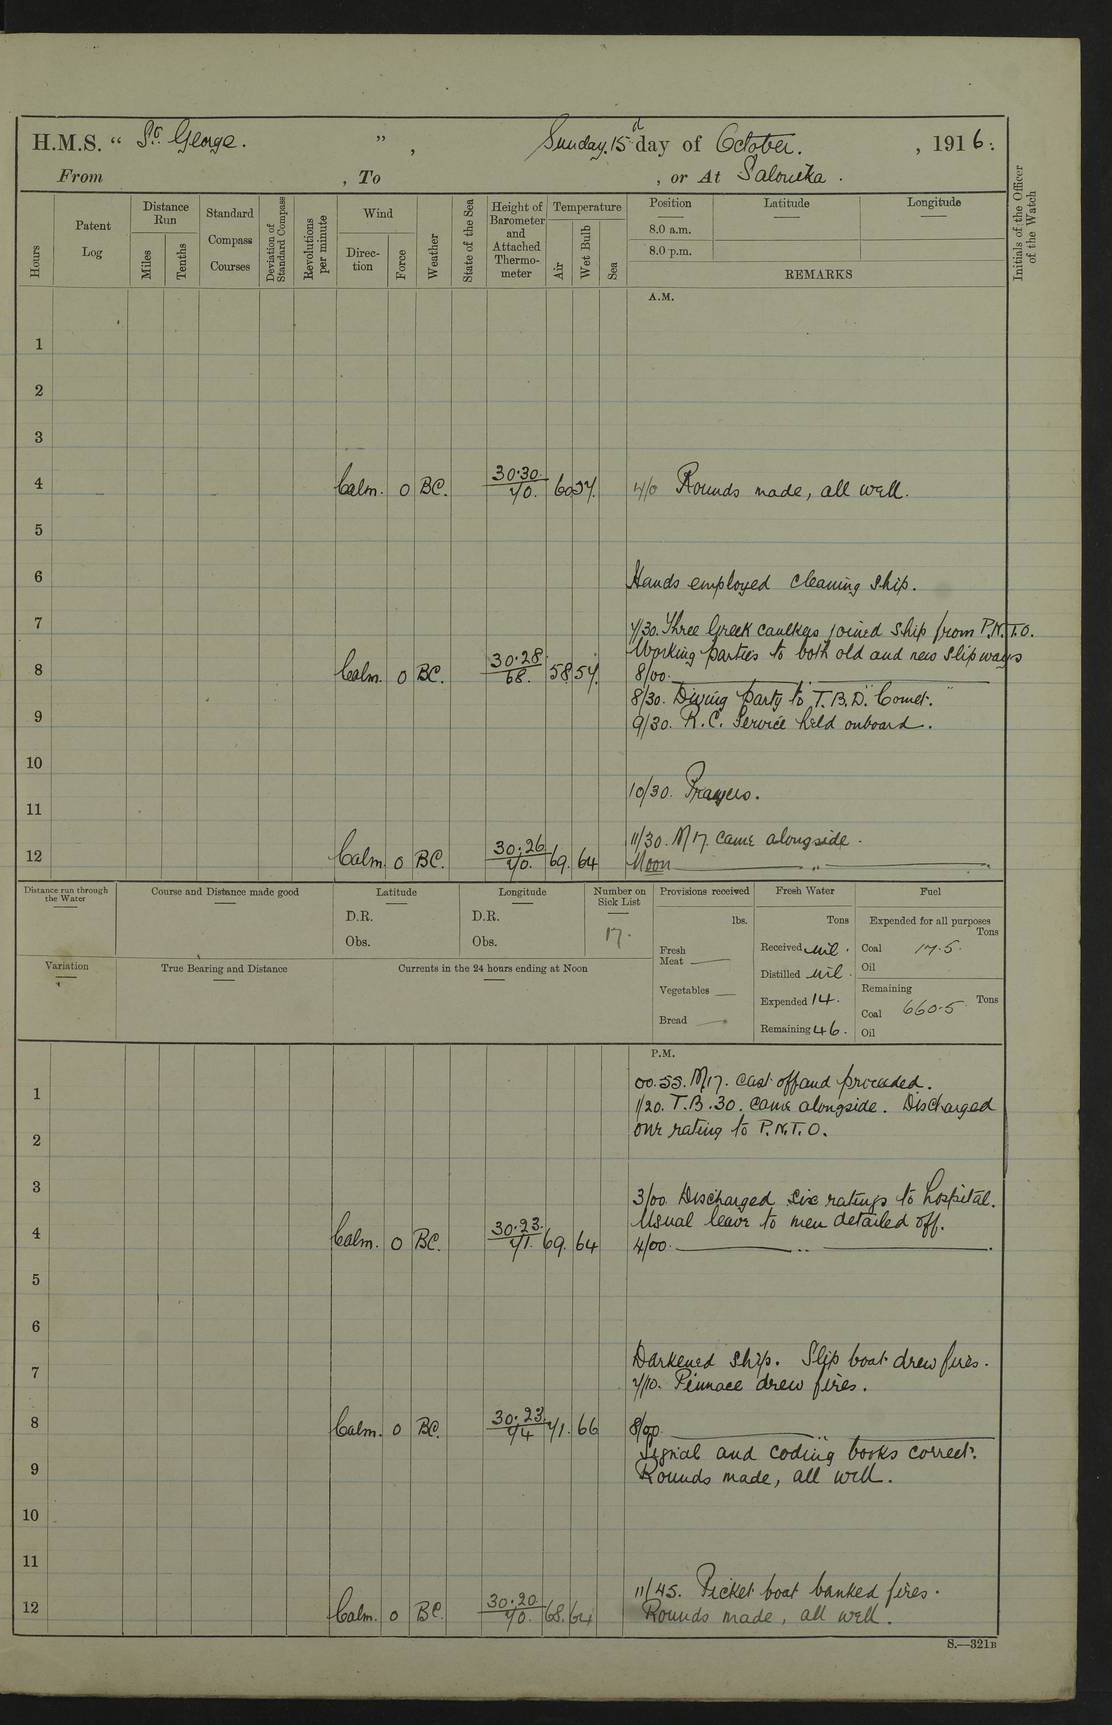 H.M.S. “ St George. ” , Sunday. 15th day of October. , 1916.
From , To , or At Salonika .
Hours
Patent Log
Distance Run
Miles
Tenths
Standard Compass Courses
Deviation of Standard Compass
Revolutions per minute
Wind
Direction
Force
Weather
State of the Sea
Height of Barometer and Attached Thermometer
Temperature
Air
Wet Bulb
Sea
Position Latitude Longitude
8.0 a.m.
8.0 p.m.
REMARKS
Initials of the Officer of the Watch
A.M.
1
2
3
4 Calm. 0 BC. 30.30/70. 60 57. 4/0 Rounds made, all well.
5
6 Hands employed cleaning ship.
7 7/30. Three Greek caulkers joined ship from P.N.T.O.
Working parties to both old and new slipways
8 Calm. 0 BC. 30.28/68. 58 57. 8/00.
8/30. Diving party to T.B.D. "Comet."
9 9/30. R.C. Service held onboard.
10
10/30. Prayers.
11
11/30. M17. came alongside.
12 Calm. 0 BC. 30.26/70. 69. 64 Noon "
Distance run through the Water
Course and Distance made good
Latitude
D.R.
Obs.
Longitude
D.R.
Obs.
Number on Sick List
17.
Provisions received
lbs.
Fresh Meat
Vegetables
Bread
Fresh Water
Tons
Received nil.
Distilled nil.
Expended 14.
Remaining 46.
Fuel
Expended for all purposes
Tons
Coal 17.5.
Oil
Remaining
Coal 660.5 Tons
Oil
Variation
True Bearing and Distance
Currents in the 24 hours ending at Noon
P.M.
00.55. M17. cast off and proceeded.
1 1/20. T.B.30. came alongside. Discharged
one rating to P.N.T.O.
2
3 3/00. Discharged six ratings to hospital.
Usual leave to men detailed off.
4 Calm. 0 BC. 30.23./71. 69. 64 4/00. "
5
6
Darkened ship. Slip boat drew fires.
7 7/10. Pinnace drew fires.
8 Calm. 0 BC. 30.23./74 71. 66 8/00. "
Signal and coding books correct.
9 Rounds made, all well.
10
11
11/45. Picket boat banked fires.
12 Calm. 0 BC. 30.20/70. 68. 64 Rounds made, all well.
S.—321B